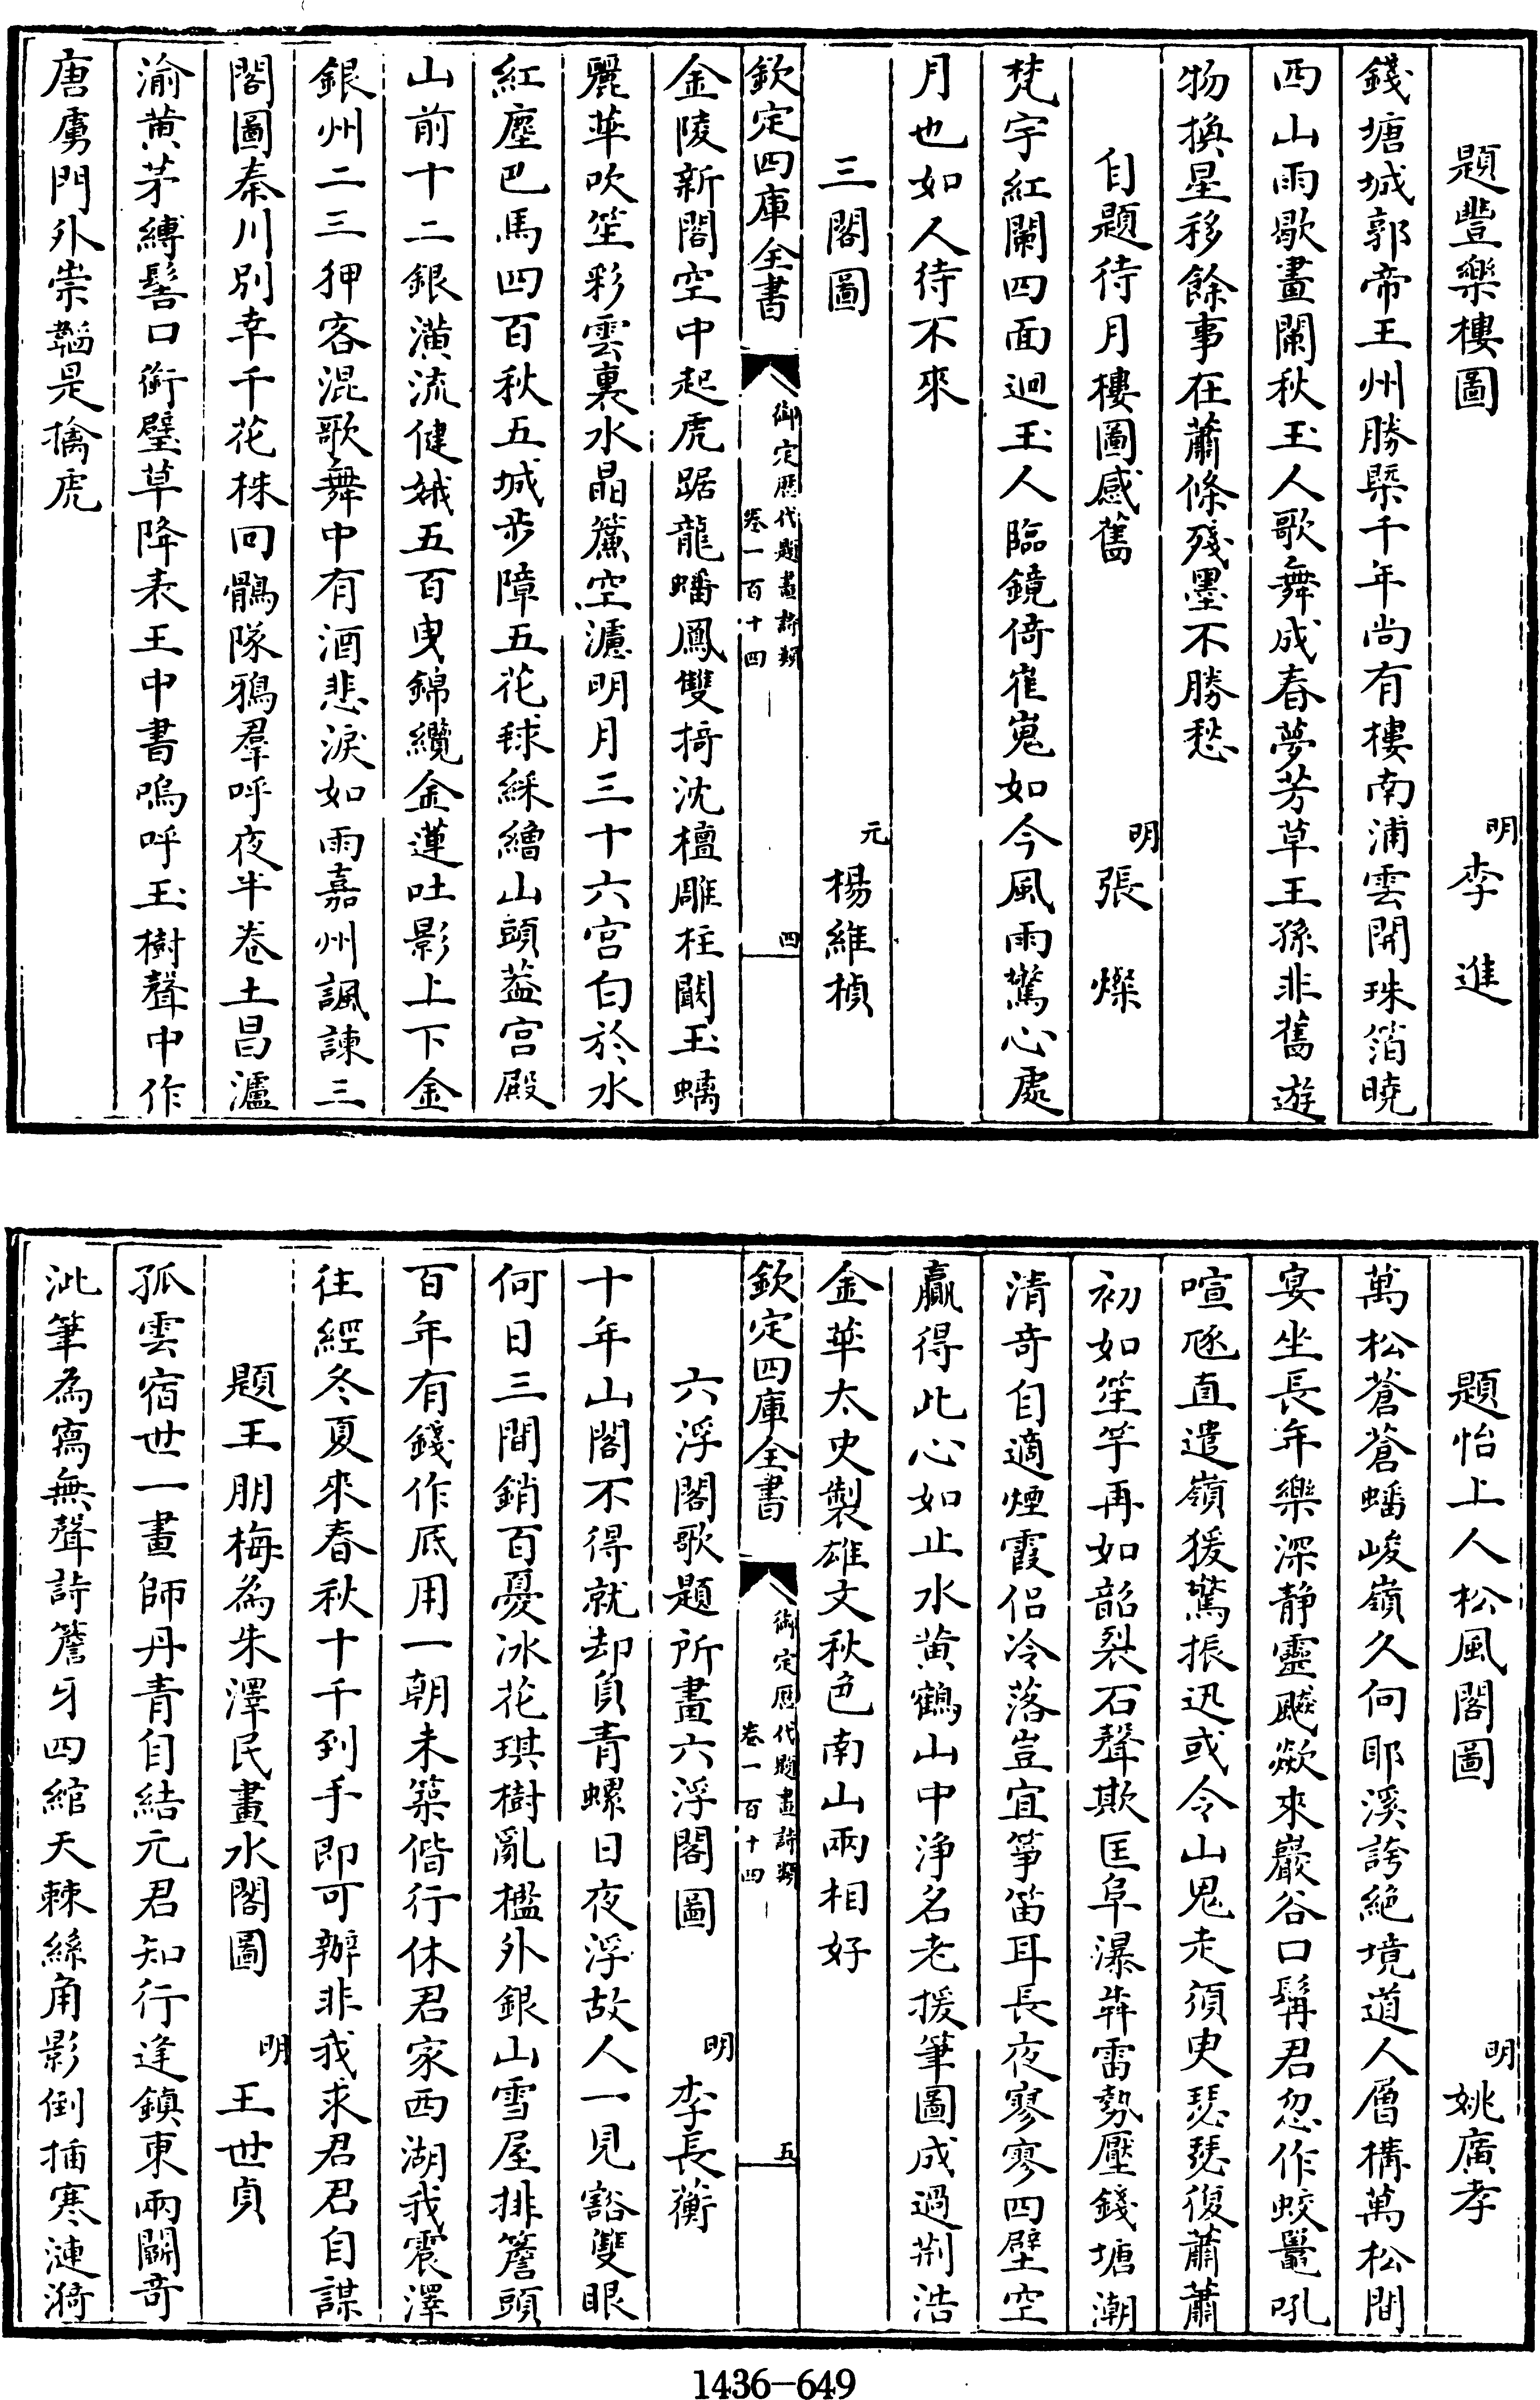 題豐樂樓圖　明李進
錢塘城郭帝王州勝槩千年尚有樓南浦雲開珠箔曉
西山雨歇畫闌秋玉人歌舞成春夢芳草王孫非舊遊
物換星移餘事在蕭條殘墨不勝愁
自題待月樓圖感舊　明張燦
梵宇紅闌四面迴玉人臨鏡倚崔嵬如今風雨驚心處
月也如人待不來
三閣圖　元楊維楨
欽定四庫全書　御定歷代題畫詩類　卷一百十四　四
金陵新閣空中起虎踞龍蟠鳳雙掎沈檀雕柱闘玉螭
麗華吹笙彩雲裏水晶簾空濾明月三十六宫白於水
紅塵巴馬四百秋五城步障五花毬綵繒山頭葢宫殿
山前十二銀潢流健娥五百曳錦纜金蓮吐影上下金
銀州二三狎客混歌舞中有酒悲淚如雨嘉州諷諫三
閣圖秦川別幸千花株回鶻隊鴉羣呼夜半卷土昌瀘
渝黄茅縛髻口銜璧草降表王中書嗚呼玉樹聲中作
唐虜門外崇韜是擒虎
題怡上人松風閣圖　明姚廣孝
萬松蒼蒼蟠峻嶺久何耶溪誇絶境道人層構萬松間
宴坐長年樂深静靈飈歘來巖谷口髯君忽作蛟鼉吼
喧豗直遣嶺猨驚振迅或令山鬼走須臾瑟瑟復蕭蕭
初如笙竽再如韶裂石聲欺匡阜瀑犇雷勢壓錢塘潮
清奇自適煙霞侣冷落豈宜箏笛耳長夜寥寥四壁空
贏得此心如止水黄鶴山中浄名老援筆圖成過荆浩
金華太史製雄文秋色南山兩相好
欽定四庫全書　御定歷代題畫詩類　卷一百十四　五
六浮閣歌題所畫六浮閣圖　明李長蘅
十年山閣不得就却負青螺日夜浮故人一見豁雙眼
何日三間銷百憂冰花琪樹亂檻外銀山雪屋排簷頭
百年有錢作底用一朝未築偕行休君家西湖我震澤
往經冬夏來春秋十千到手即可辦非我求君君自謀
題王朋梅為朱澤民畫水閣圖　明王世貞
孤雲宿世一畫師丹青自結元君知行逢鎮東兩闢奇
泚筆為寫無聲詩簷牙四綰天棘絲角影倒插寒漣漪
1436-649